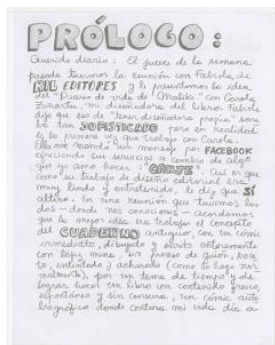 PRÓLOGO:
Querido diario: El jueves de la semana
pasada tuvimos la reunión con Fabiola, de
RIL EDITORES y le presentamos la idea
del "Diario de vida de Malika" con Carola
Zararta, mi diseñadora del libro. Fabiola
dijo que eso de "tener diseñadora propia" sona
ba tan SOFISTICADO pero en realidad
es la primera vez que trabajo con Carola.
Ella me mandó un mensaje por FACEBOOK
ofreciendo sus servicios a cambio de algo
que yo amo hacer: "CANJE". Así es que
como su trabajo de diseño editorial era
muy lindo y entretenido, le dije que SÍ
altiro. En una reunión que tuvimos las
dos - donde nos conocimos - acordamos
que la mejor idea era trabajar el concepto
del CUADERNO antiguo, con un cómic
inmediato, dibujado y escrito enteramente
con lápiz mina, sin proceso de guión, boce
to, entintado y achurado (como lo hago nor
malmente), por un tema de tiempo y de
lograr hacer un libro con contenido fresco,
espontáneo y sin censura, un cómic auto
biográfico donde contara mi vida día a